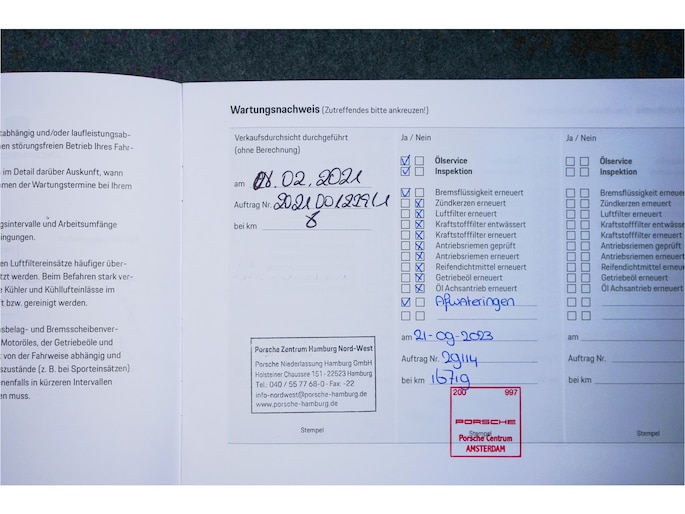 Wartungsnachweis (Zutreffendes bitte ankreuzen!)
abhängig und/oder laufleistungsab-
nen störungsfreien Betrieb Ihres Fahr-
im Detail darüber Auskunft, wann
men der Wartungstermine bei Ihrem
gsintervalle und Arbeitsumfänge
ingungen.
en Luftfiltereinsätze häufiger über-
tzt werden. Beim Befahren stark ver-
e Kühler und Kühllufteinlässe im
t bzw. gereinigt werden.
sbelag- und Bremsscheibenver-
Motoröles, der Getriebeöle und
von der Fahrweise abhängig und
szustände (z. B. bei Sporteinsätzen)
enenfalls in kürzeren Intervallen
en muss.
Verkaufsdurchsicht durchgeführt
(ohne Berechnung)
am 02.2021
Auftrag Nr.
bei km 8
Porsche Zentrum Hamburg Nord-West
Porsche Niederlassung Hamburg GmbH
Holsteiner Chaussee 151 - 22523 Hamburg
Tel.: 040 / 55 77 68-0 - Fax: -22
info-nordwest@porsche-hamburg.de
www.porsche-hamburg.de
Stempel
Ja / Nein
Ölservice
Inspektion
Bremsflüssigkeit erneuert
Zündkerzen erneuert
Luftfilter erneuert
Kraftstofffilter entwässert
Kraftstofffilter erneuert
Antriebsriemen geprüft
Antriebsriemen erneuert
Reifendichtmittel erneuert
Getriebeöl erneuert
Öl Achsantrieb erneuert
Afwateringen
am 21-09-2023
Auftrag Nr. 29114
bei km 16719
200 997
PORSCHE
Stempel
Porsche Centrum
AMSTERDAM
Ja / Nein
Ölservice
Inspektion
Bremsflüssigkeit erneuer
Zündkerzen erneuert
Luftfilter erneuert
Kraftstofffilter entwässer
Kraftstofffilter erneuert
Antriebsriemen geprüft
Antriebsriemen erneuert
Reifendichtmittel erneuer
Getriebeöl erneuert
Öl Achsantrieb erneuert
am
Auftrag Nr.
bei km
Stempel